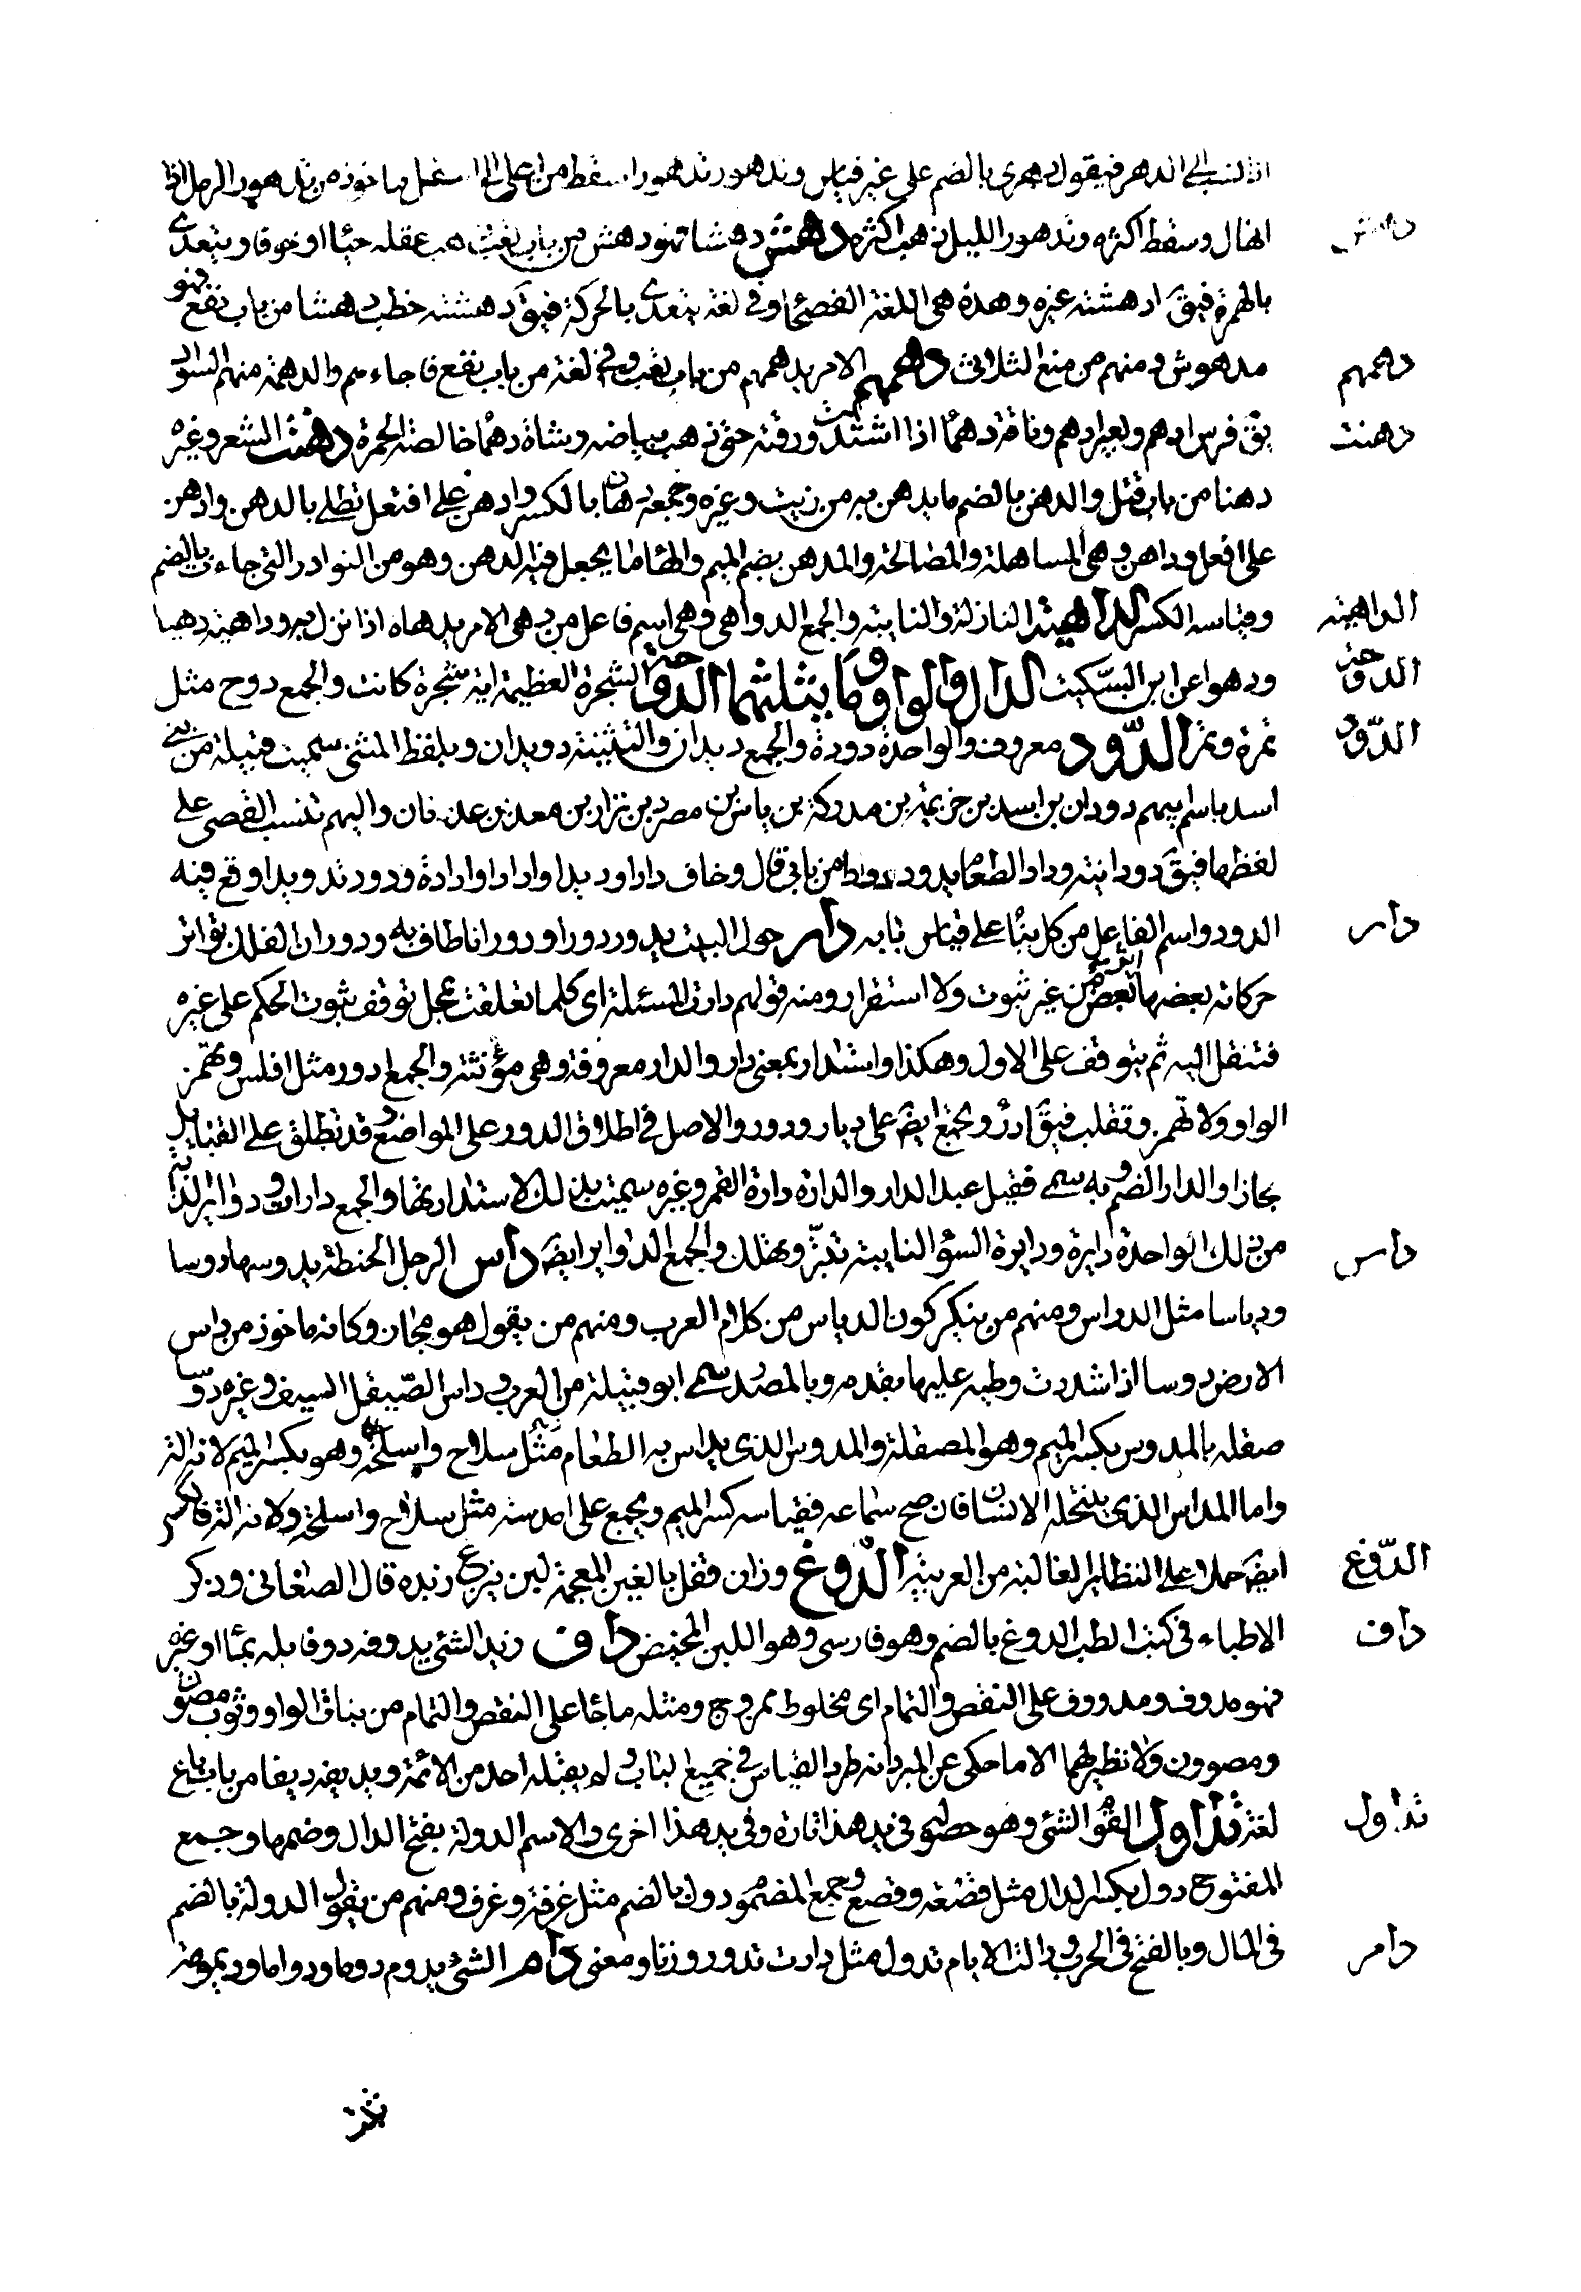 اذا نسب الى الدهر فيقول دهرى بالضم على غير قياس وتدهور تدهورا سقط من اعلى الى اسفل ماخوذ من تدهور الرمل اذا
انهال وسقط اكثره وتدهور الليل ذهب اكثره دهش دهشا فهو دهش من باب تعب ذهب عقله حياء او خوفا ويتعدى
دهش
بالهمزة فيق ادهشته غيره وهذه هى اللغة الفصحا وفى لغة يتعدى بالحركة فيق دهشته خطب دهشا من باب نفع فهو
مدهوش ومنهم من منع الثلاثى دهمهم الامر يدهمهم من باب تعب وفى لغة من باب نفع فاجاءهم والدهمة منهم السواد
دهمهم
يق فرس ادهم وبعير ادهم وناقة دهماء اذا اشتدت ورقته حتى ذهب بياضه وشاة دهما خالصة الحمرة دهنت الشعر وغيره
دهنت
دهنا من باب قتل والدهن بالضم ما يدهن به من زيت وغيره وجمعه دهان بالكسر وادهن على افتعل تطلى بالدهن وادهن
على افعل وداهن وهى المساهلة والمصالحة والمدهن بضم الميم والهاء ما يجعل فيه الدهن وهو من النوادر التى جاءت بالضم
وقياسه الكسر الداهية النازلة والنايبة والجمع الدواهى وهى اسم فاعل من دهى الامر يدهاه اذا نزل به وداهية دهيا
الداهية
ودهوا عن ابن السكيت الدال والواو وما يثلثهما الدوحة الشجرة العظيمة اية شجرة كانت والجمع دوح مثل
الدوحة
تمرة وتمر الدّود معروف والواحدة دودة والجمع ديدان والتثنية دويدان وبلفظ المثنى سميت قبيلة من بنى
الدّود
اسد باسم ابيهم دودان بن اسد بن خزيمة بن مدركة بن ياس بن مضر بن نزار بن معد بن عدنان واليهم تنسب القصى على
لفظها فيق دودانية وداد الطعام يدود دودا من بابى قال وخاف داد اود يدا واداد ادادة ودود تدويدا وقع فيه
الدود واسم الفاعل من كل بناء على قياس بابه دار حول البيت يدور دورا ودورانا طاف به ودوران الفلك تواتر
دار
حركاته بعضها اثر بعض من غير ثبوت ولا استقرار ومنه قولهم دارت المسئلة اى كلما تعلقت بمحل توقف ثبوت الحكم على غيره
فتنقل اليه ثم يتوقف على الاول وهكذا واستدار بمعنى دار والدار معروفة وهى مؤنثة والجمع ادور مثل افلس وتهمز
الواو ولا تهمز وتقلب فيق ادر ويجمع ايض على ديار ودور والاصل فى اطلاق الدور على المواضع وقد تطلق على القبايل
مجازا والدار الصنم وبه سمى فقيل عبد الدار والدارة دارة القمر وغيره سميت بذلك لاستدارتها والجمع دارات ودوائر الدابة
من ذلك الواحدة دايرة ودايرة السؤ النايبة تنزل وتهلك والجمع الدواير ايض داس الرجل الحنطة يدوسها دوسا
داس
ودياسا مثل الدراس ومنهم من ينكر كون الدياس من كلام العرب ومنهم من يقول هو مجاز وكانه ماخوذ من داس
الارض دوسا اذا شددت وطيه عليها بقدمه وبالمصدر سمى ابو قبيلة من العرب وداس الصيقل السيف وغيره دوسا
صقله بالمدوس بكسر الميم وهو المصقلة والمدوس الذى يداس به الطعام مثل سلاح واسلحة وهو بكسر الميم لانه الة
واما المداس الذى ينتعله الانسان فان صح سماعه فقياسه كسر الميم ويجمع على امدسة مثل سلاح واسلحة ولانه الة فالكسر
ايض حملا على النظاير الغالبة من العربية الدوغ وزان قفل بالغين المعجمة لبن ينزع زبده قال الصغانى وذكر
الدّوغ
الاطباء فى كتب الطب الدوغ بالضم وهو فارسى وهو اللبن المخيض داف زيد الشئ يدوفه دوفا بله بماء او غيره
داف
فهو مدوف ومدووف على النقص والتمام اى مخلوط ممزوج ومثله ما جاء على النقص والتمام من بنات الواو وثوب مصون
ومصوون ولا نظير لهما الا ما حكى عن المبرد انه طرد القياس فى جميع الباب ولم يقبله احد من الائمة ويديفه ديفا من باب باع
لغة تداول القوم الشئ وهو حصوله فى يد هذا تارة وفى يد هذا اخرى والاسم الدولة بفتح الدال وضمها وجمع
تداول
المفتوح دول بكسر الدال مثل قصعة وقصع وجمع المضموم دول بالضم مثل غرفة وغرف ومنهم من يقول الدولة بالضم
فى المال وبالفتح فى الحرب ودالت الايام تدول مثل دارت تدور وزنا ومعنى دام الشئ يدوم دوما ودواما وديمومة
دام